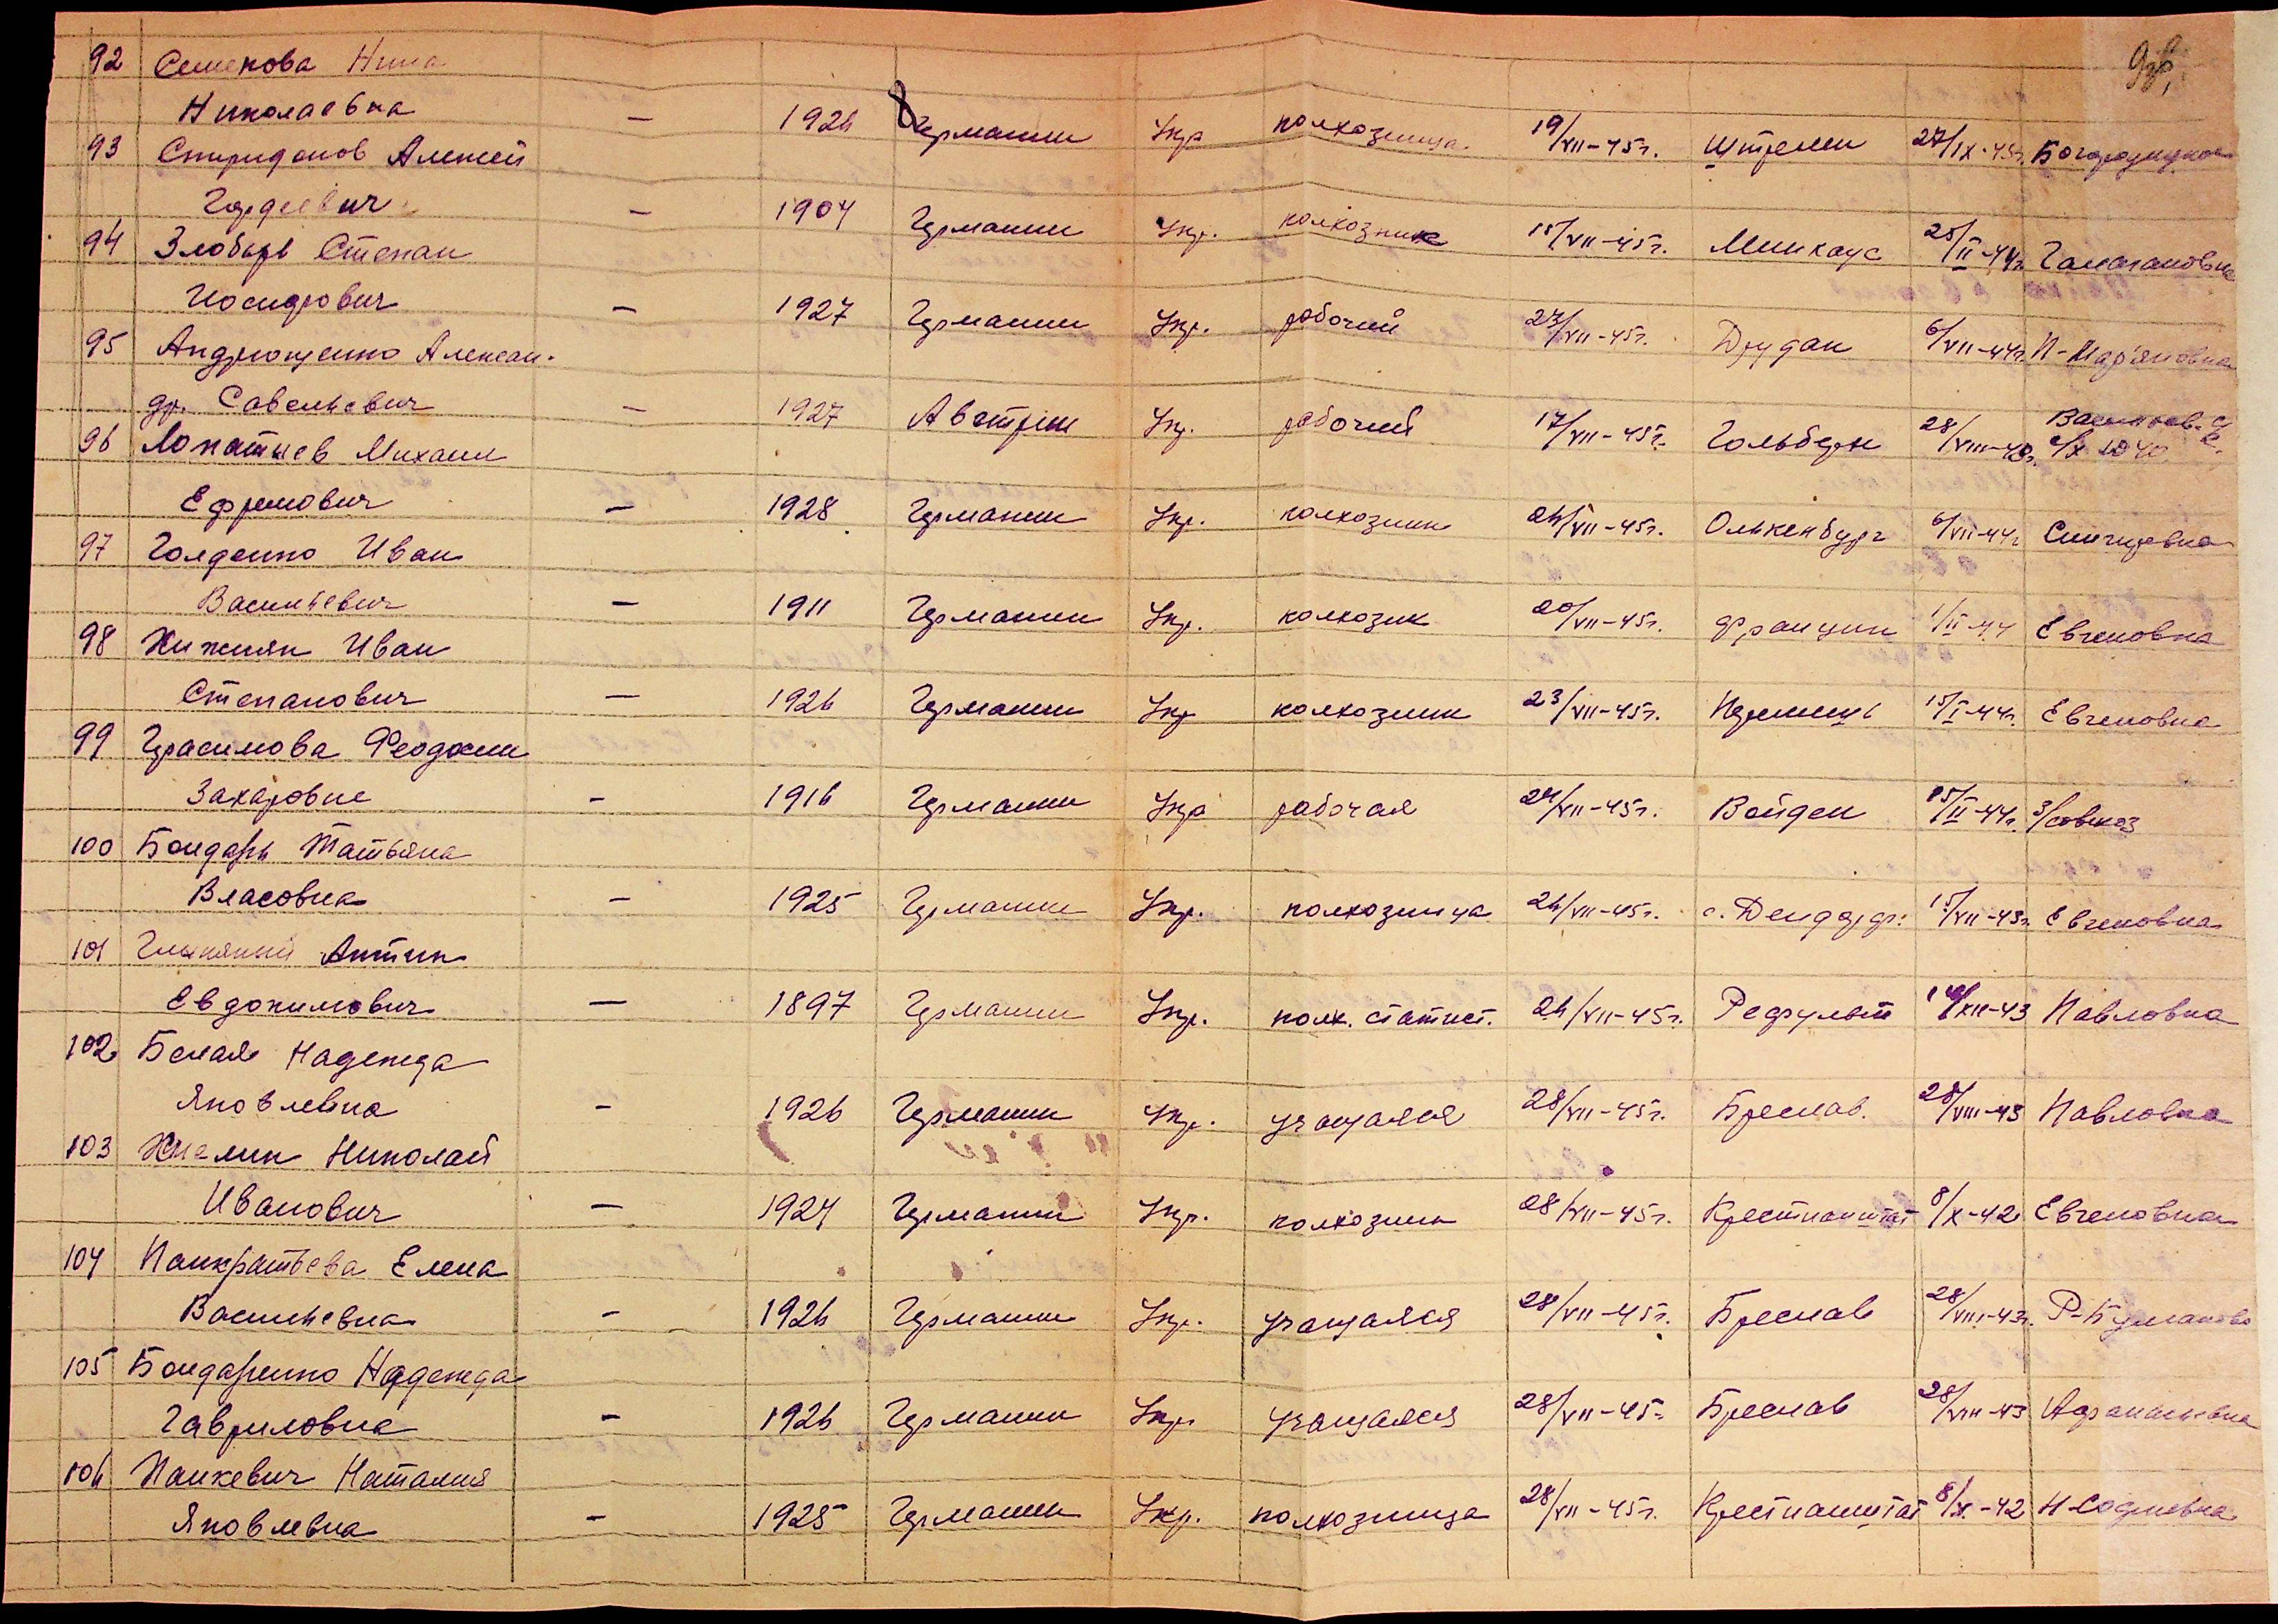 92 Семенова Нина
Николаевна — 1926 Германии Укр колхозница. 19/VII-45г. Штреми 27/IX-43г. Богородицкое
93 Спиридонов Алексей
Гордеевич — 1904 Германии Укр. колхозник 15/VII-45г. 25/II-44г.
94 Злобырь Степан
Иосифович — 1927 Германии Укр. рабочий 23/VII-45г. 6/VII-44г.
95 Андрющенко Алексан-
др. Савельевич — 1927 Австрии Укр. рабочий 17/VII-45г. Гольберн 28/VIII-
96 Михаил
Ефремович — 1928 Германии Укр. колхозник 26/VII-45г. Олькенбург 6/VII-44г
97 Голденко Иван
Васильевич — 1911 Германии Укр. колхозик 20/VII-45г. Франции 1/II-44 Евгеновка
98 Нижник Иван
Степанович — 1926 Германии Укр колхозник 23/VII-45г. 15/I-44г. Евгеновка
99 Герасимова Феодосии
Захаровне - 1916 Германии Укр рабочая 24/VII-45г. Войден 15/II-44г. З/совхоз
100 Бондарь Татьяна
Власовна - 1925 Германии Укр. колхозница 26/VII-45г. 15/VII-43г Евгеновка
101 Антин
Евдокимович — 1897 Германии Укр. колх. статист. 26/VII-45г. 14/XII-43 Павловка
102 Белая Надежда
Яковлевна - 1926 Германии Укр. учащаяся 28/VII-45г. Бреслав. 28/VIII-43 Павловка
103 Николай
Иванович — 1924 Германии Укр. колхозник 28/VII-45г. 8/X-42 Евгеновка
104 Панкратьева Елена
Васильевна - 1926 Германии Укр. учащаяся 28/VII-45г. Бреслав 28/VIII-43г.
105 Бондаренко Надежда
Гавриловна - 1926 Германии Укр учащаяся 28/VII-45г Бреслав 28/VIII-43 Афанасьевка
106 Панкевич Наталия
Яковлевна - 1925 Германии Укр. колхозница 28/VII-45г. 8/X-42